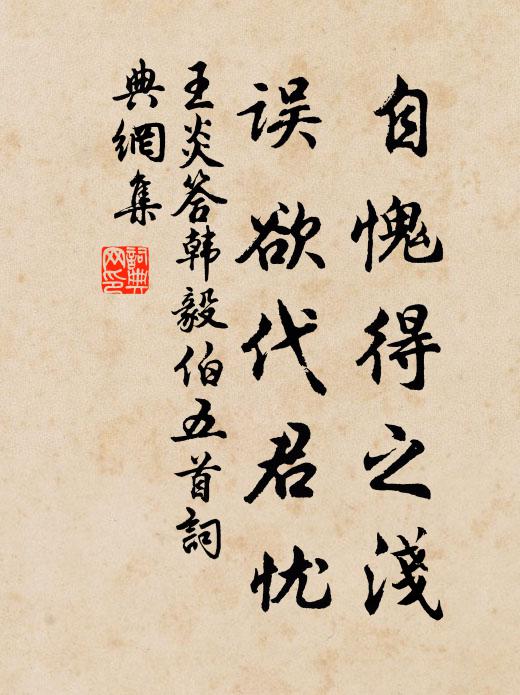 自愧得之淺
误欲代君忧
王炎答韩毅伯五首詞
典網集
詞典
网印